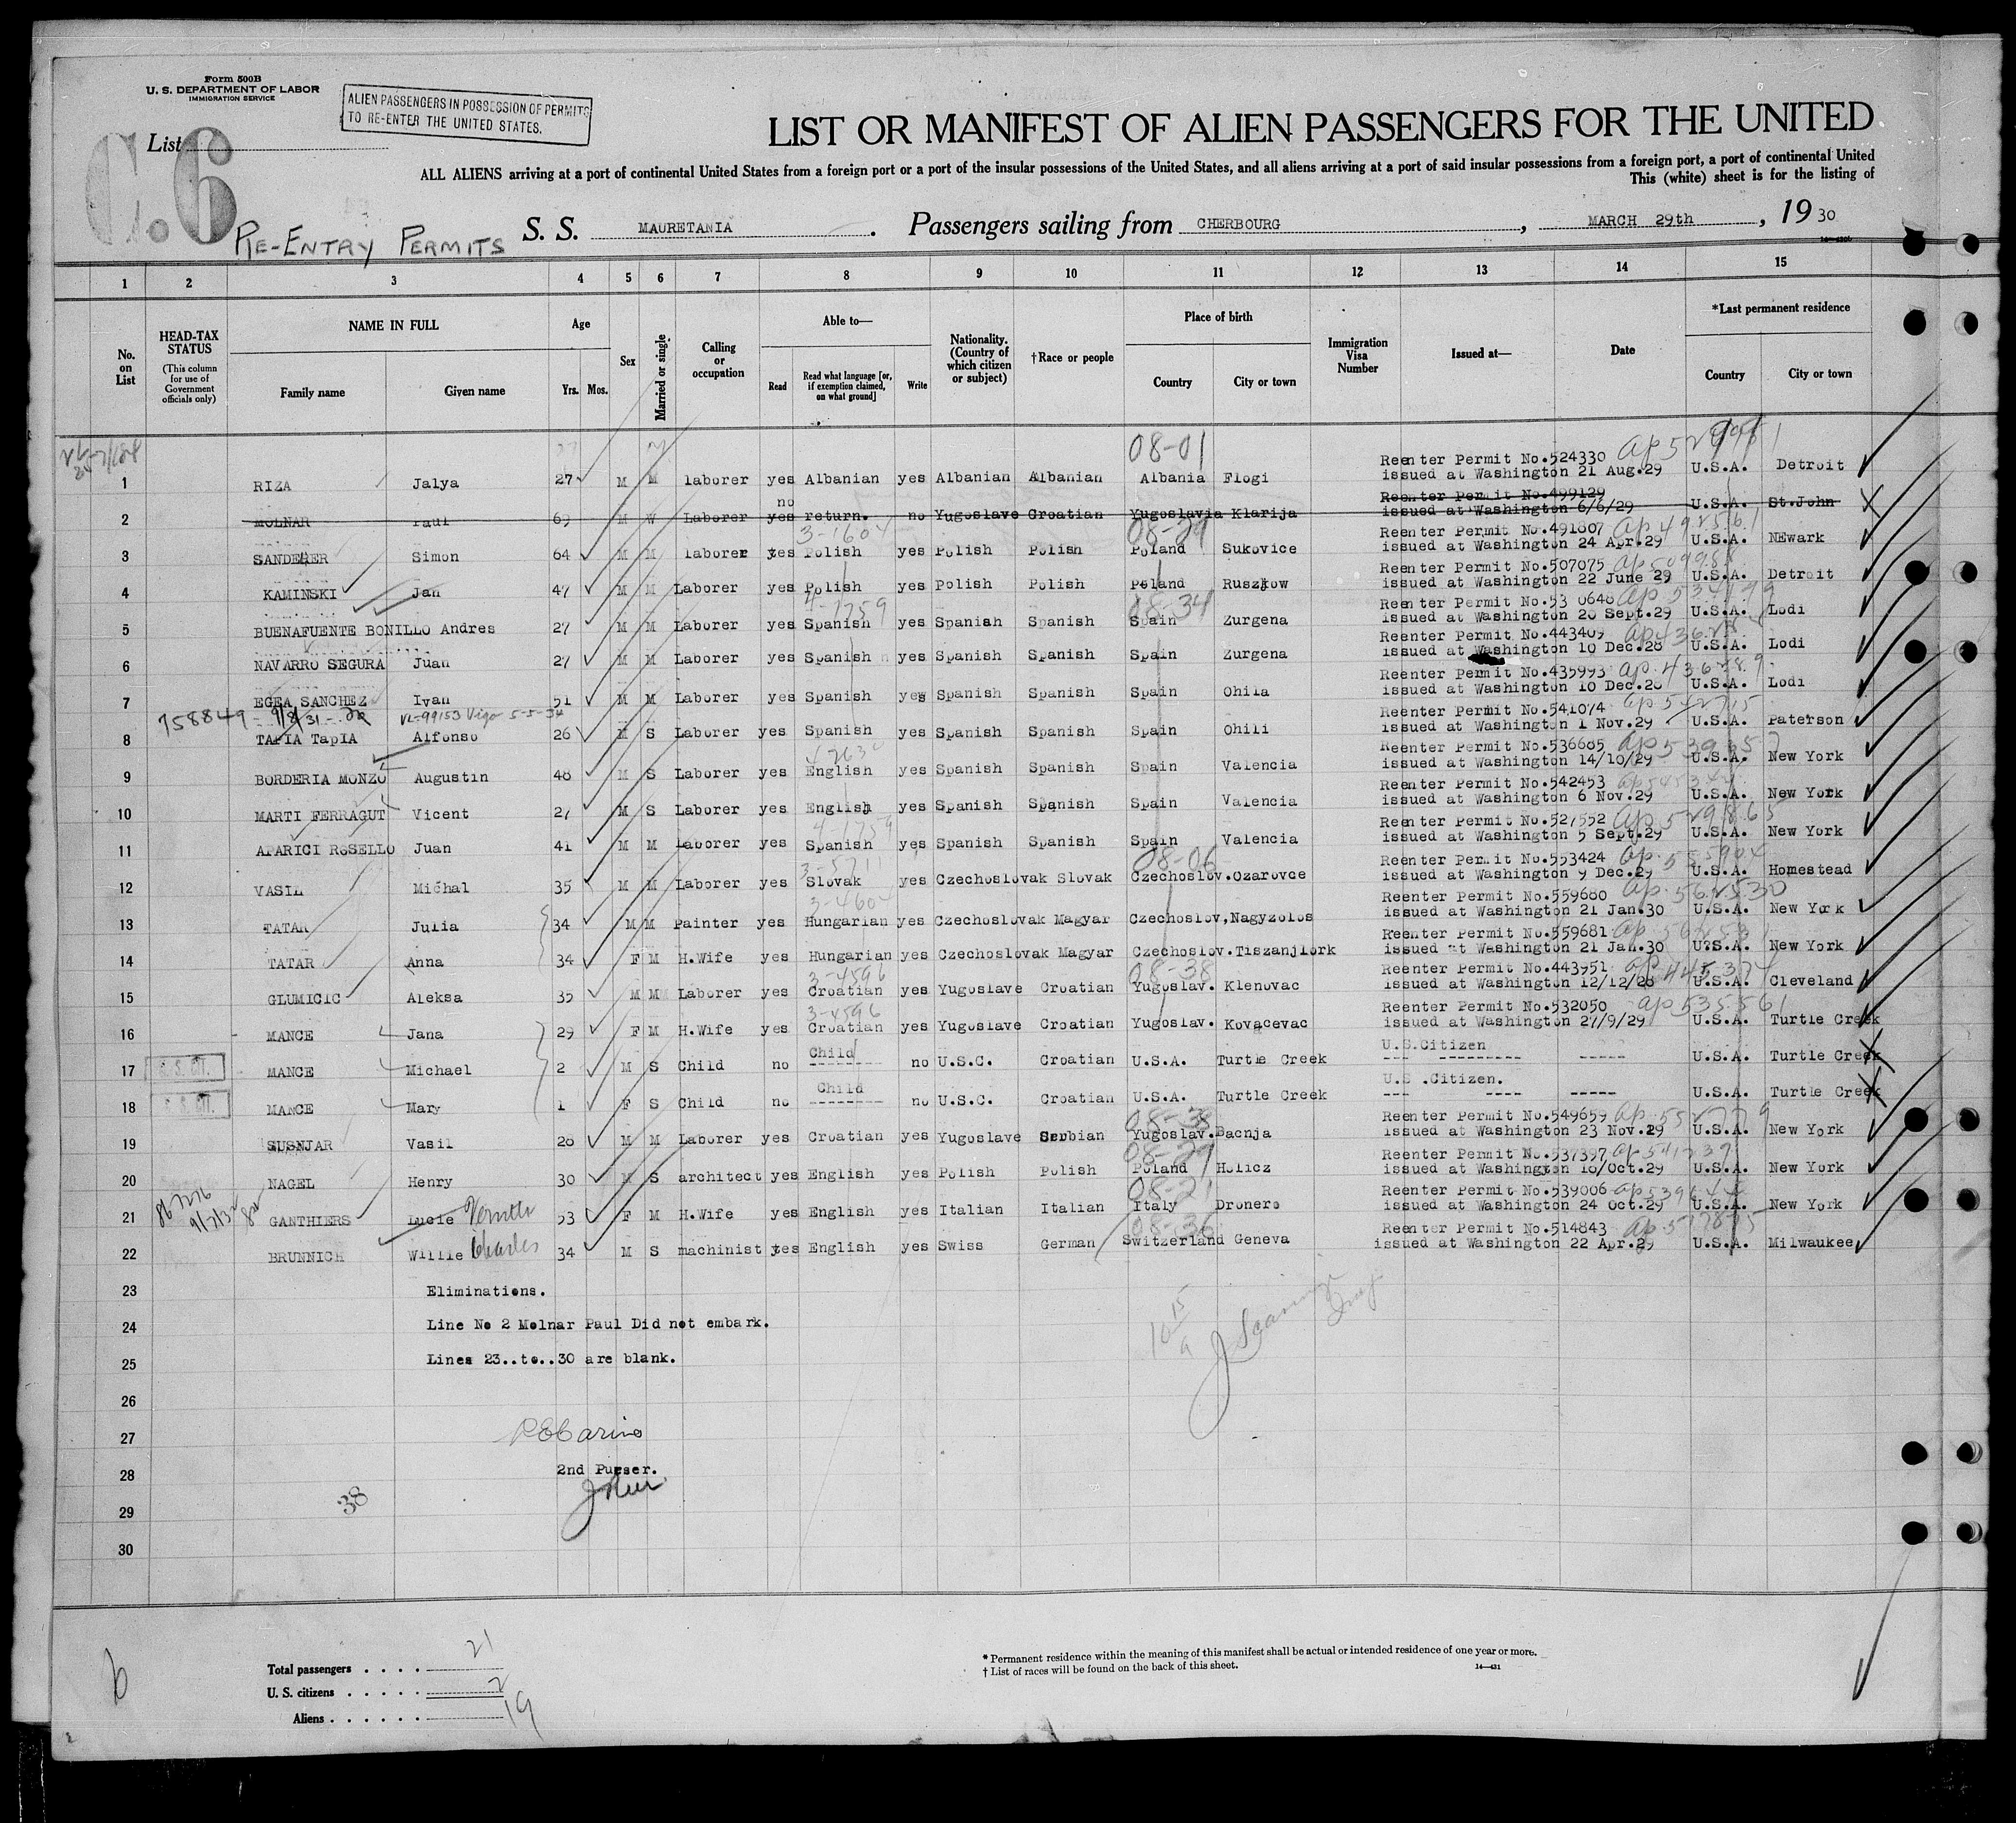 Form 500B
U. S. DEPARTMENT OF LABOR
IMMIGRATION SERVICE
ALIEN PASSENGERS IN POSSESSION OF PERMITS
TO RE-ENTER THE UNITED STATES.
List
C.6
LIST OR MANIFEST OF ALIEN PASSENGERS FOR THE UNITED
ALL ALIENS arriving at a port of continental United States from a foreign port or a port of the insular possessions of the United States, and all aliens arriving at a port of said insular possessions from a foreign port, a port of continental United
This (white) sheet is for the listing of
RE-ENTRY PERMITS S. S. MAURETANIA. Passengers sailing from CHERBOURG, MARCH 29th, 1930
1 2 3 4 5 6 7 8 9 10 11 12 13 14 15
No. on List
HEAD-TAX STATUS
(This column for use of Government officials only)
NAME IN FULL
Family name Given name
Age
Yrs. Mos.
Sex
Married or single
Calling or occupation
Able to—
Read
Read what language [or, if exemption claimed, on what ground]
Write
Nationality. (Country of which citizen or subject)
†Race or people
Place of birth
Country City or town
Immigration Visa Number
Issued at—
Date
*Last permanent residence
Country City or town
08-01
1 RIZA Jalya 27 M M laborer yes Albanian yes Albanian Albanian Albania Flogi Reenter Permit No.524330 issued at Washington 21 Aug.29 U.S.A. Detroit
2 MOLNAR Paul 69 M W Laborer yes no return. no Yugoslave Croatian Yugoslavia Klarija Reenter Permit No.499129 issued at Washington 6/6/29 U.S.A. St.John
3-1604 08-29
3 Simon 64 M M laborer yes Polish yes Polish Polish Poland Sukovice Reenter Permit No.491807 ap 492561 issued at Washington 24 Apr.29 U.S.A. NEwark
4 KAMINSKI Jan 47 M M Laborer yes Polish yes Polish Polish Poland Ruszkow Reenter Permit No.507075 issued at Washington 22 June 29 U.S.A. Detroit
4-1759 08-34
5 BUENAFUENTE BONILLO Andres 27 M M Laborer yes Spanish yes Spanish Spanish Spain Zurgena Reenter Permit No.53 0648 issued at Washington 20 Sept.29 U.S.A. Lodi
6 NAVARRO SEGURA Juan 27 M M Laborer yes Spanish yes Spanish Spanish Spain Zurgena Reenter Permit No.443409 issued at Washington 10 Dec.28 U.S.A. Lodi
7 EGEA SANCHEZ Ivan 51 M M Laborer yes Spanish yes Spanish Spanish Spain Ohila Reenter Permit No.435993 ap. 436489 issued at Washington 10 Dec.28 U.S.A. Lodi
758849 - 9/8/31 VL-99153 Vigo 5-5-34
8 TAPIA TapIA Alfonso 26 M S Laborer yes Spanish yes Spanish Spanish Spain Ohili Reenter Permit No.541074 issued at Washington 1 Nov.29 U.S.A. Paterson
9 BORDERIA MONZO Augustin 48 M S Laborer yes English yes Spanish Spanish Spain Valencia Reenter Permit No.536685 issued at Washington 14/10/29 U.S.A. New York
10 MARTI FERRAGUT Vicent 27 M S Laborer yes English yes Spanish Spanish Spain Valencia Reenter Permit No.542453 issued at Washington 6 Nov.29 U.S.A. New York
4-1759
11 APARICI RoSELLO Juan 41 M M Laborer yes Spanish yes Spanish Spanish Spain Valencia Reenter Permit No.527552 ap 529865 issued at Washington 5 Sept.29 U.S.A. New York
3-5711 08-06
12 VASIL Michal 35 M M Laborer yes Slovak yes Czechoslovak Slovak Czechoslov. Ozarovce Reenter Permit No.553424 ap. 555904 issued at Washington 9 Dec.29 U.S.A. Homestead
3-4604
13 TATAR Julia 34 M M Painter yes Hungarian yes Czechoslovak Magyar Czechoslov, Nagyzolos Reenter Permit No.559680 ap. 562530 issued at Washington 21 Jan.30 U.S.A. New York
14 TATAR Anna 34 F M H.Wife yes Hungarian yes Czechoslovak Magyar Czechoslov. Tiszanjlork Reenter Permit No.559681 ap 562531 issued at Washington 21 Jan.30 U?S.A. New York
3-4596 08-38
15 GLUMICIC Aleksa 35 M M Laborer yes Croatian yes Yugoslave Croatian Yugoslav. Klenovac Reenter Permit No.443951 ap 445374 issued at Washington 12/12/28 U.S.A. Cleveland
3-4596
16 MANCE Jana 29 F M H.Wife yes Croatian yes Yugoslave Croatian Yugoslav. Kovacevac Reenter Permit No.532050 ap 535561 issued at Washington 27/9/29 U.S.A. Turtle Creek
17 U. S. CIT. MANCE Michael 2 M S Child no Child -------- no U.S.C. Croatian U.S.A. Turtle Creek U.S.Citizen --- --------- ----- U.S.A. Turtle Creek
18 U. S. CIT. MANCE Mary 1 F S Child no Child -------- no U.S.C. Croatian U.S.A. Turtle Creek U.S .Citizen. --- ---- ----- U.S.A. Turtle Creek
08-38
19 SUSNJAR Vasil 28 M M Laborer yes Croatian yes Yugoslave Serbian Yugoslav. Bacnja Reenter Permit No.549659 ap. 552779 issued at Washington 23 Nov.29 U.S.A. New York
08-29
20 NAGEL Henry 30 M S architect yes English yes Polish Polish Poland Holicz Reenter Permit No.537397 ap 541239 issued at Washington 18/Oct.29 U.S.A. New York
08-21
21 GANTHIERS Lucie 53 F M H.Wife yes English yes Italian Italian Italy Dronero Reenter Permit No.539006 issued at Washington 24 Oct.29 U.S.A. New York
08-36
22 BRUNNICH Willie Charles 34 M S machinist yes English yes Swiss German Switzerland Geneva Reenter Permit No.514843 issued at Washington 22 Apr.29 U.S.A. Milwaukee
23 Eliminations.
24 Line No 2 Molnar Paul Did not embark.
25 Lines 23..to..30 are blank.
26
27
28 2nd Purser.
29 38
30
Total passengers . . . . 21
U. S. citizens . . . . . 2
Aliens . . . . . . 19
* Permanent residence within the meaning of this manifest shall be actual or intended residence of one year or more.
† List of races will be found on the back of this sheet.
14—431